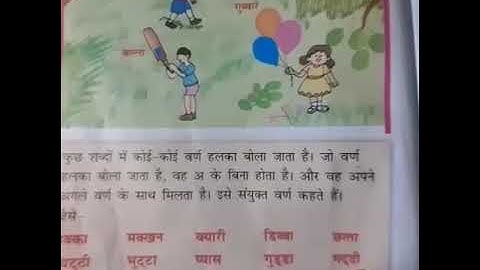 गुब्बारे
बल्ला
कुछ शब्दों में कोई-कोई वर्ण हलका बोला जाता है। जो वर्ण
हलका बोला जाता है, वह अ के बिना होता है। और वह अपने
अगले वर्ण के साथ मिलता है। इसे संयुक्त वर्ण कहते हैं।
जैसे-
मक्खन क्यारी डिब्बा छत्ता
भुट्टा प्यास गुड्डा